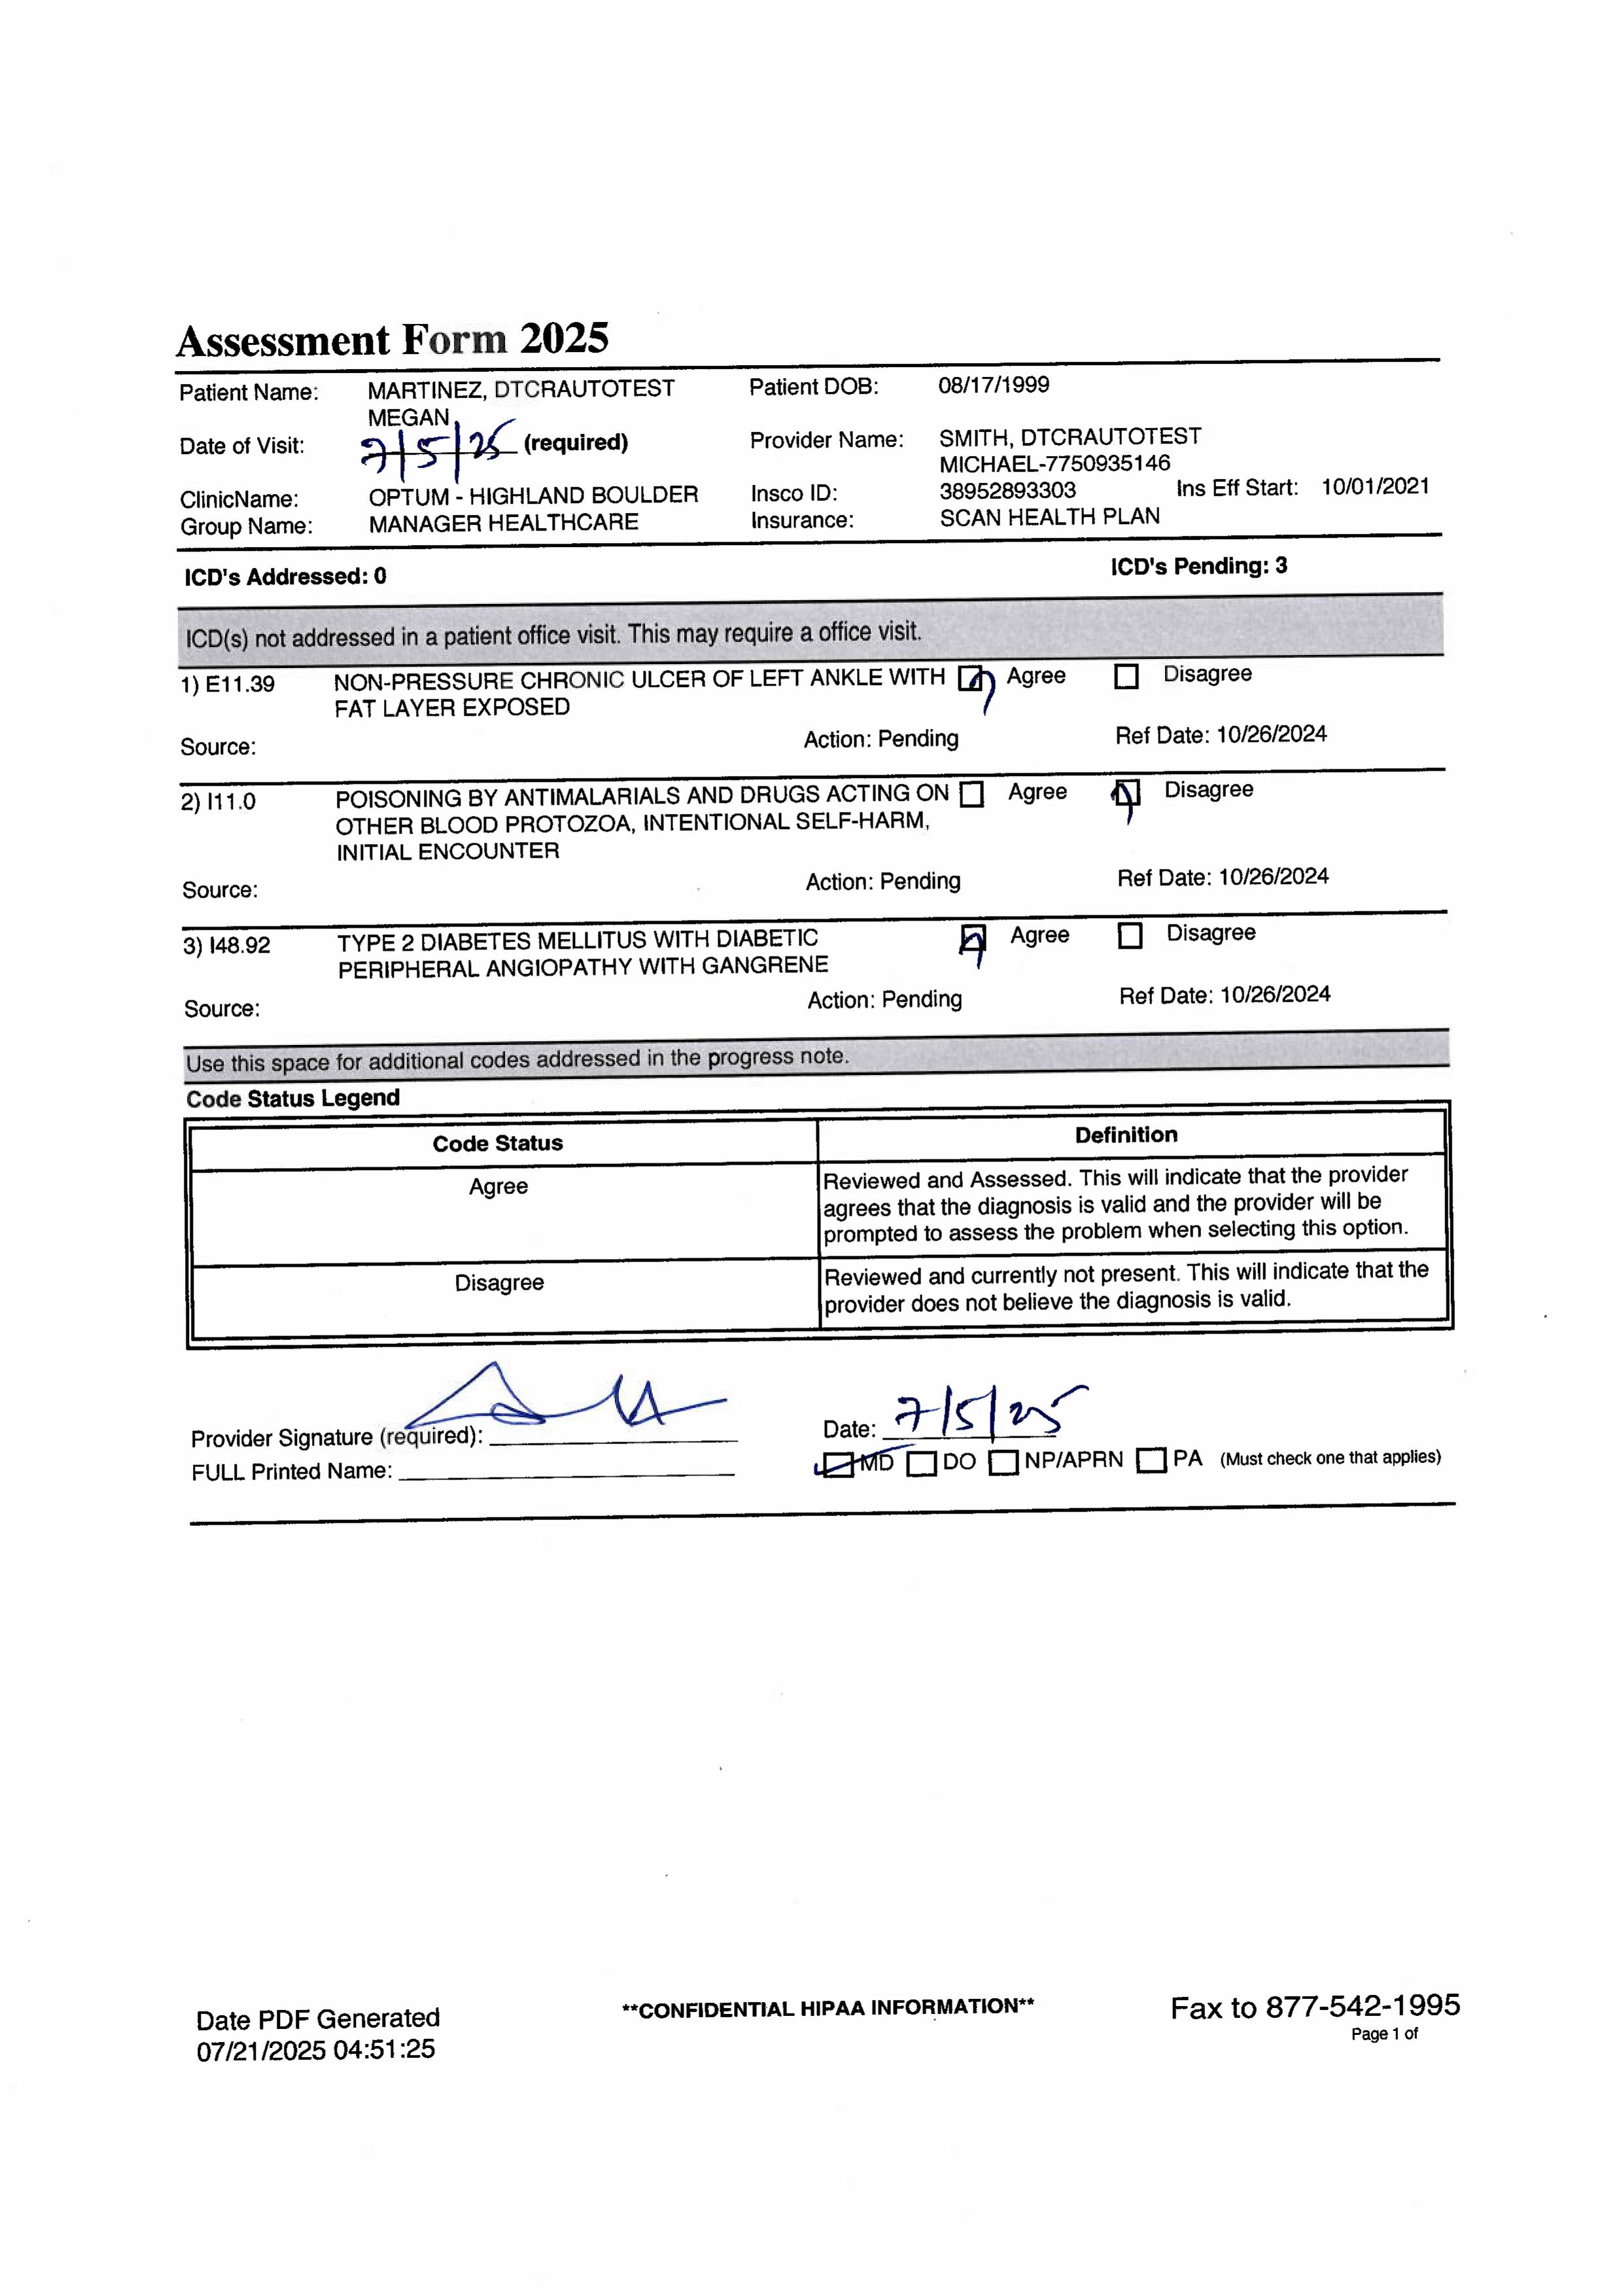 Assessment Form 2025
Patient Name: MARTINEZ, DTCRAUTOTEST Patient DOB: 08/17/1999
MEGAN
Date of Visit: 7/5/25 (required) Provider Name: SMITH, DTCRAUTOTEST
MICHAEL-7750935146
ClinicName: OPTUM - HIGHLAND BOULDER Insco ID: 38952893303 Ins Eff Start: 10/01/2021
Group Name: MANAGER HEALTHCARE Insurance: SCAN HEALTH PLAN
ICD's Addressed: 0 ICD's Pending: 3
ICD(s) not addressed in a patient office visit. This may require a office visit.
1) E11.39 NON-PRESSURE CHRONIC ULCER OF LEFT ANKLE WITH Agree Disagree
FAT LAYER EXPOSED
Source: Action: Pending Ref Date: 10/26/2024
2) I11.0 POISONING BY ANTIMALARIALS AND DRUGS ACTING ON Agree Disagree
OTHER BLOOD PROTOZOA, INTENTIONAL SELF-HARM,
INITIAL ENCOUNTER
Source: Action: Pending Ref Date: 10/26/2024
3) I48.92 TYPE 2 DIABETES MELLITUS WITH DIABETIC Agree Disagree
PERIPHERAL ANGIOPATHY WITH GANGRENE
Source: Action: Pending Ref Date: 10/26/2024
Use this space for additional codes addressed in the progress note.
Code Status Legend
Code Status Definition
Agree Reviewed and Assessed. This will indicate that the provider
agrees that the diagnosis is valid and the provider will be
prompted to assess the problem when selecting this option.
Disagree Reviewed and currently not present. This will indicate that the
provider does not believe the diagnosis is valid.
Provider Signature (required): Date: 7/5/25
FULL Printed Name: MD DO NP/APRN PA (Must check one that applies)
Date PDF Generated **CONFIDENTIAL HIPAA INFORMATION** Fax to 877-542-1995
07/21/2025 04:51:25 Page 1 of